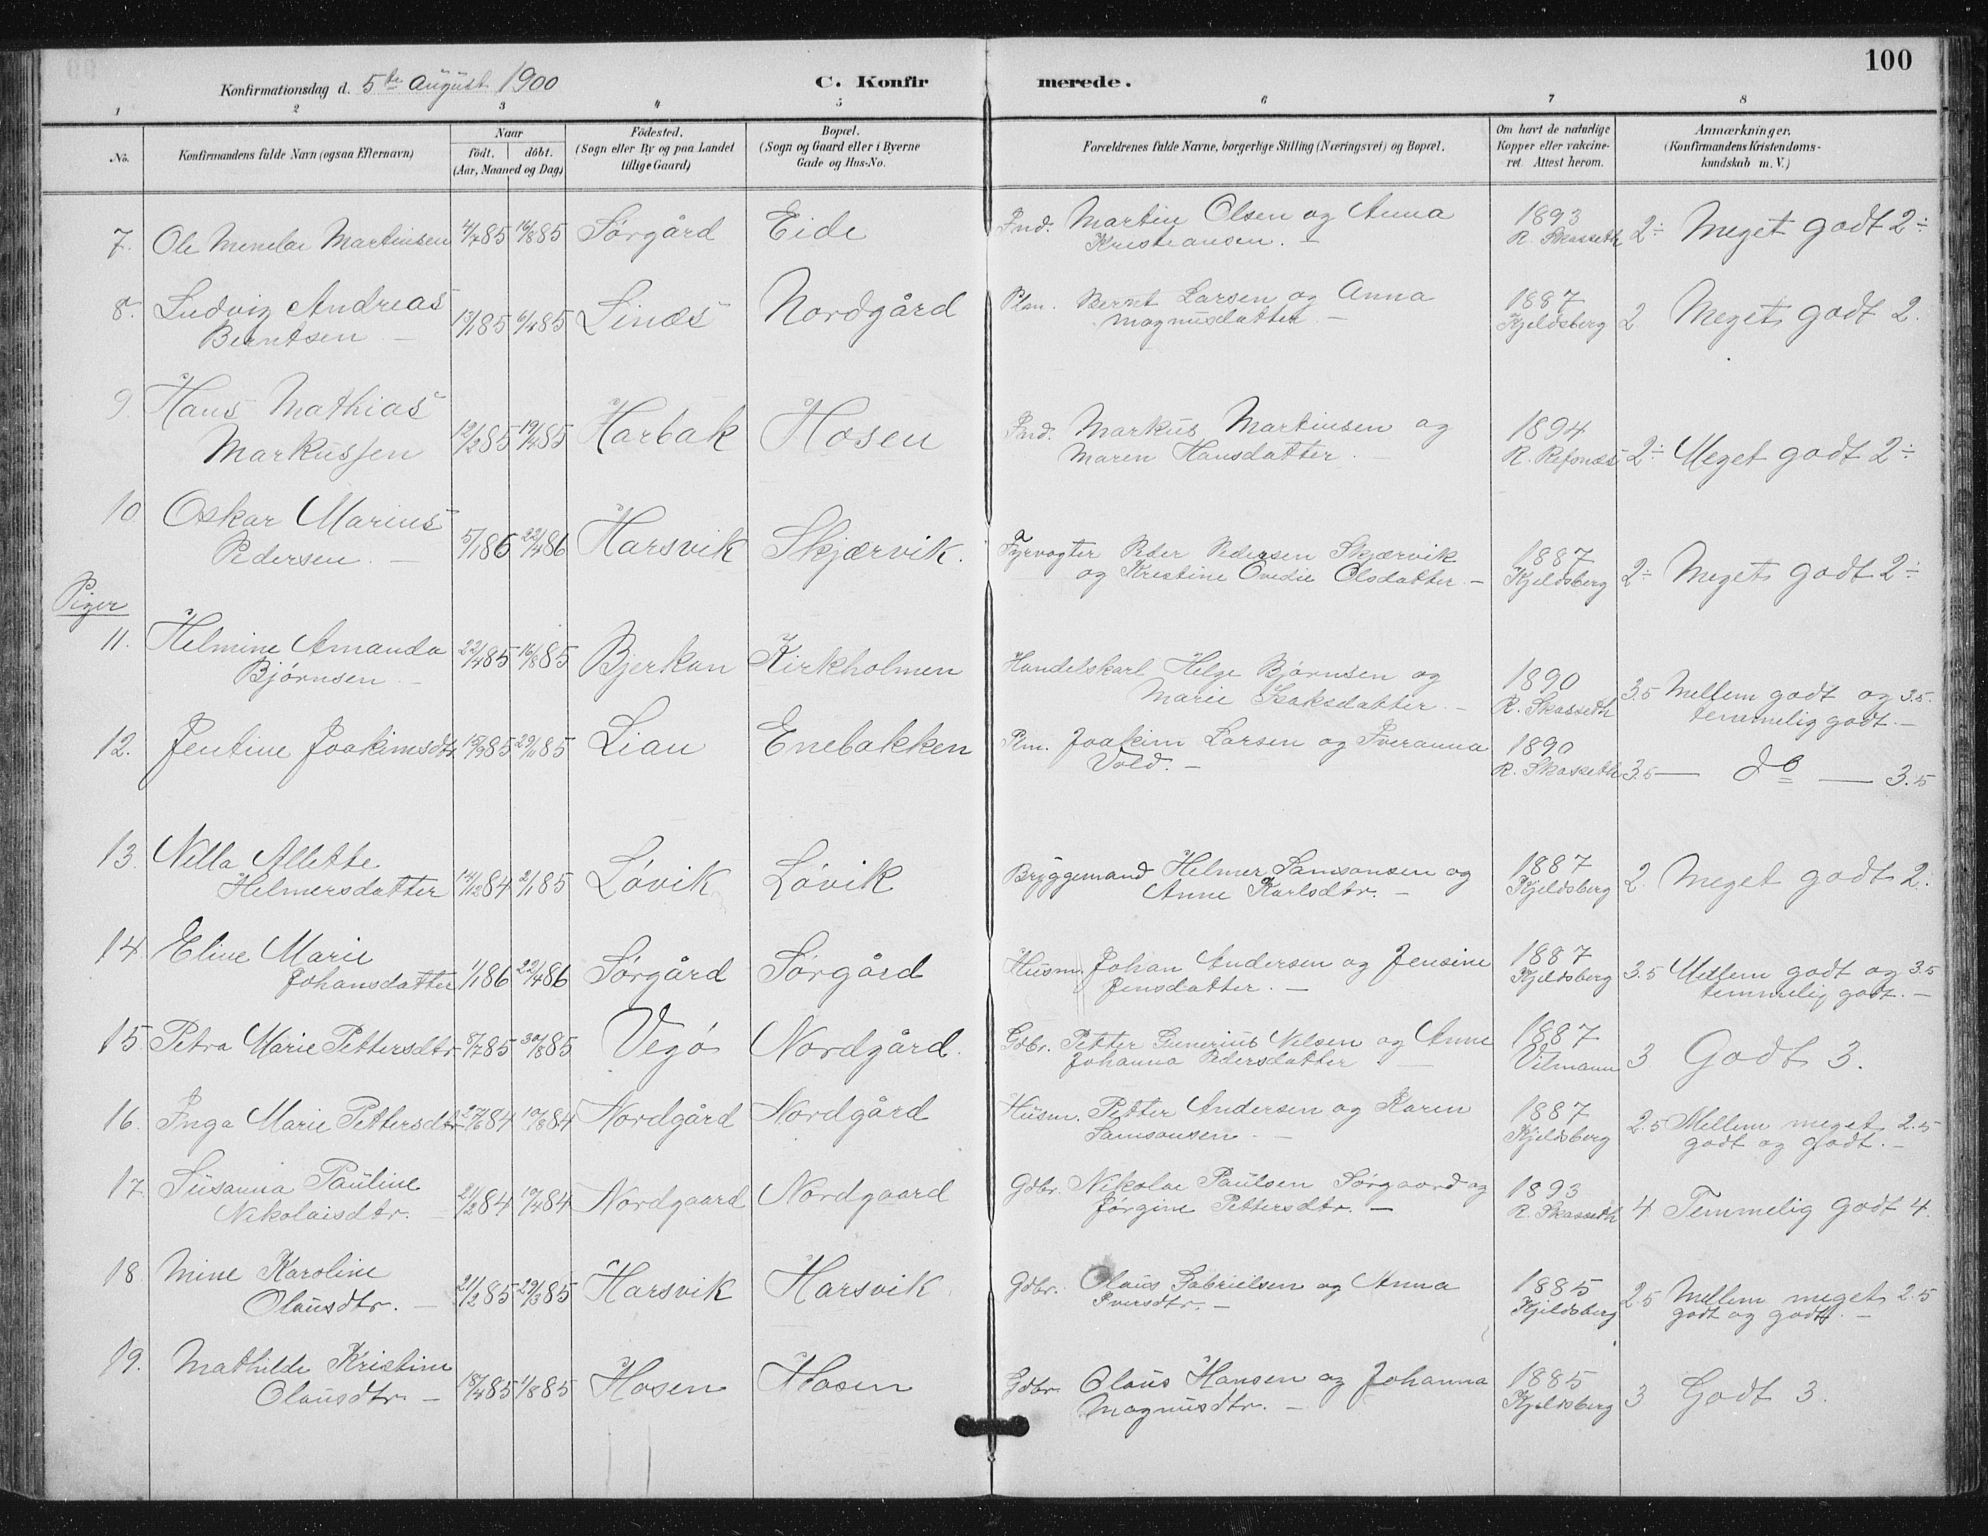 100
Konfirmationsdag d. 5te August 1900
C. Konfirmerede.
1 2 3 4 5 6 7 8
No. | Konfirmandens fulde Navn (ogsaa Efternavn) | Naar født. | døbt. (Aar, Maaned og Dag) | Fødested. (Sogn eller By og paa Landet tillige Gaard) | Bopæl. (Sogn og Gaard eller i Byerne Gade og Hus-No. | Forældrenes fulde Navne, borgerlige Stilling (Næringsvei) og Bopæl. | Om havt de naturlige Kopper eller vakcineret. Attest herom. | Anmærkninger. (Konfirmandens Kristendomskundskab m. V.)
7. Ole Menelai Martinsen 4/7 85 16/8 85 Sørgård Eide Ind. Martin Olsen og Anna Kristiansen. – 1893 R. Skasseth 2÷ Meget godt 2÷
8. Ludvig Andreas Berntsen – 13/1 85 6/4 85 Linæs Nordgård Plm. Bernt Larsen og Anna Magnusdatter – 1887 Kjeldsberg 2 Meget godt 2.
9. Hans Mathias Markussen 12/2 85 19/4 85 Harbak Hosen Ind. Markus Martinsen og Maren Hansdatter. – 1894 R. Refsnæs 2÷ Meget godt 2÷
10. Oskar Marius Pedersen. – 5/1 86 22/4 86 Harsvik Skjærvik. Fyrvogter Peder Pedersen Skjærvik og Kristine Ovedie Olsdatter. – 1887 Kjeldsberg 2÷ Meget godt 2÷
Piger
11. Helmine Amanda Bjørnsen – 22/4 85 16/8 85 Bjerkan Kirkholmen Handelskarl Helge Bjørnsen og Marie Isaksdatter. – 1890 R. Skasseth 3.5 Mellem godt og 3.5. temmelig godt. –
12. Jentine Joakimsdtr 15/9 85 29/11 85 Lian Enebakken Plm. Joakim Larsen og Iveranna Vold. – 1890 R. Skasseth 3.5 — do — 3.5
13. Nella Alette Helmersdatter 14/12 84 2/1 85 Løvik Løvik Bryggemand Helmer Samsonsen og Anne Karlsdtr. – 1887 Kjeldsberg 2. Meget godt 2.
14. Eline Marie Johansdatter 1/1 86 22/4 86 Sørgård Sørgård Husm. Johan Andersen og Jensine Jensdatter. – 1887 Kjeldsberg 3.5 Mellem godt og 3.5 temmelig godt. –
15. Petra Marie Pettersdtr. 8/7 85 30/8 85 Vegø Nordgård. Gdbr. Petter Gunerius Nilsen og Anne Johanna Pedersdatter – 1887 Vilmann 3 Godt 3.
16. Inga Marie Pettersdtr. 27/6 84 10/8 84 Nordgård Nordgård Husm. Petter Andersen og Karen Samsonsen – 1887 Kjeldsberg 2.5 Mellem meget 2.5 godt og godt. –
17. Susanna Pauline Nikolaisdtr. – 21/2 84 10/4 84 Nordgaard Nordgaard Gdbr. Nikolai Paulsen Sørgaard og Jørgine Pettersdtr. – 1893 R. Skasseth 4. Temmelig godt 4.
18. Mine Karoline Olausdtr. – 21/2 85 29/3 85 Harsvik Harsvik Gdbr. Olaus Gabrielsen og Anna Iversdtr. – 1885 Kjeldsberg 2.5 Mellem meget 2.5 godt og godt. –
19. Mathilde Kristine Olausdtr – 18/4 85 1/8 85 Hosen Hosen Gdbr. Olaus Hansen og Johanna Magnusdtr. – 1885 Kjeldsberg 3 Godt 3.